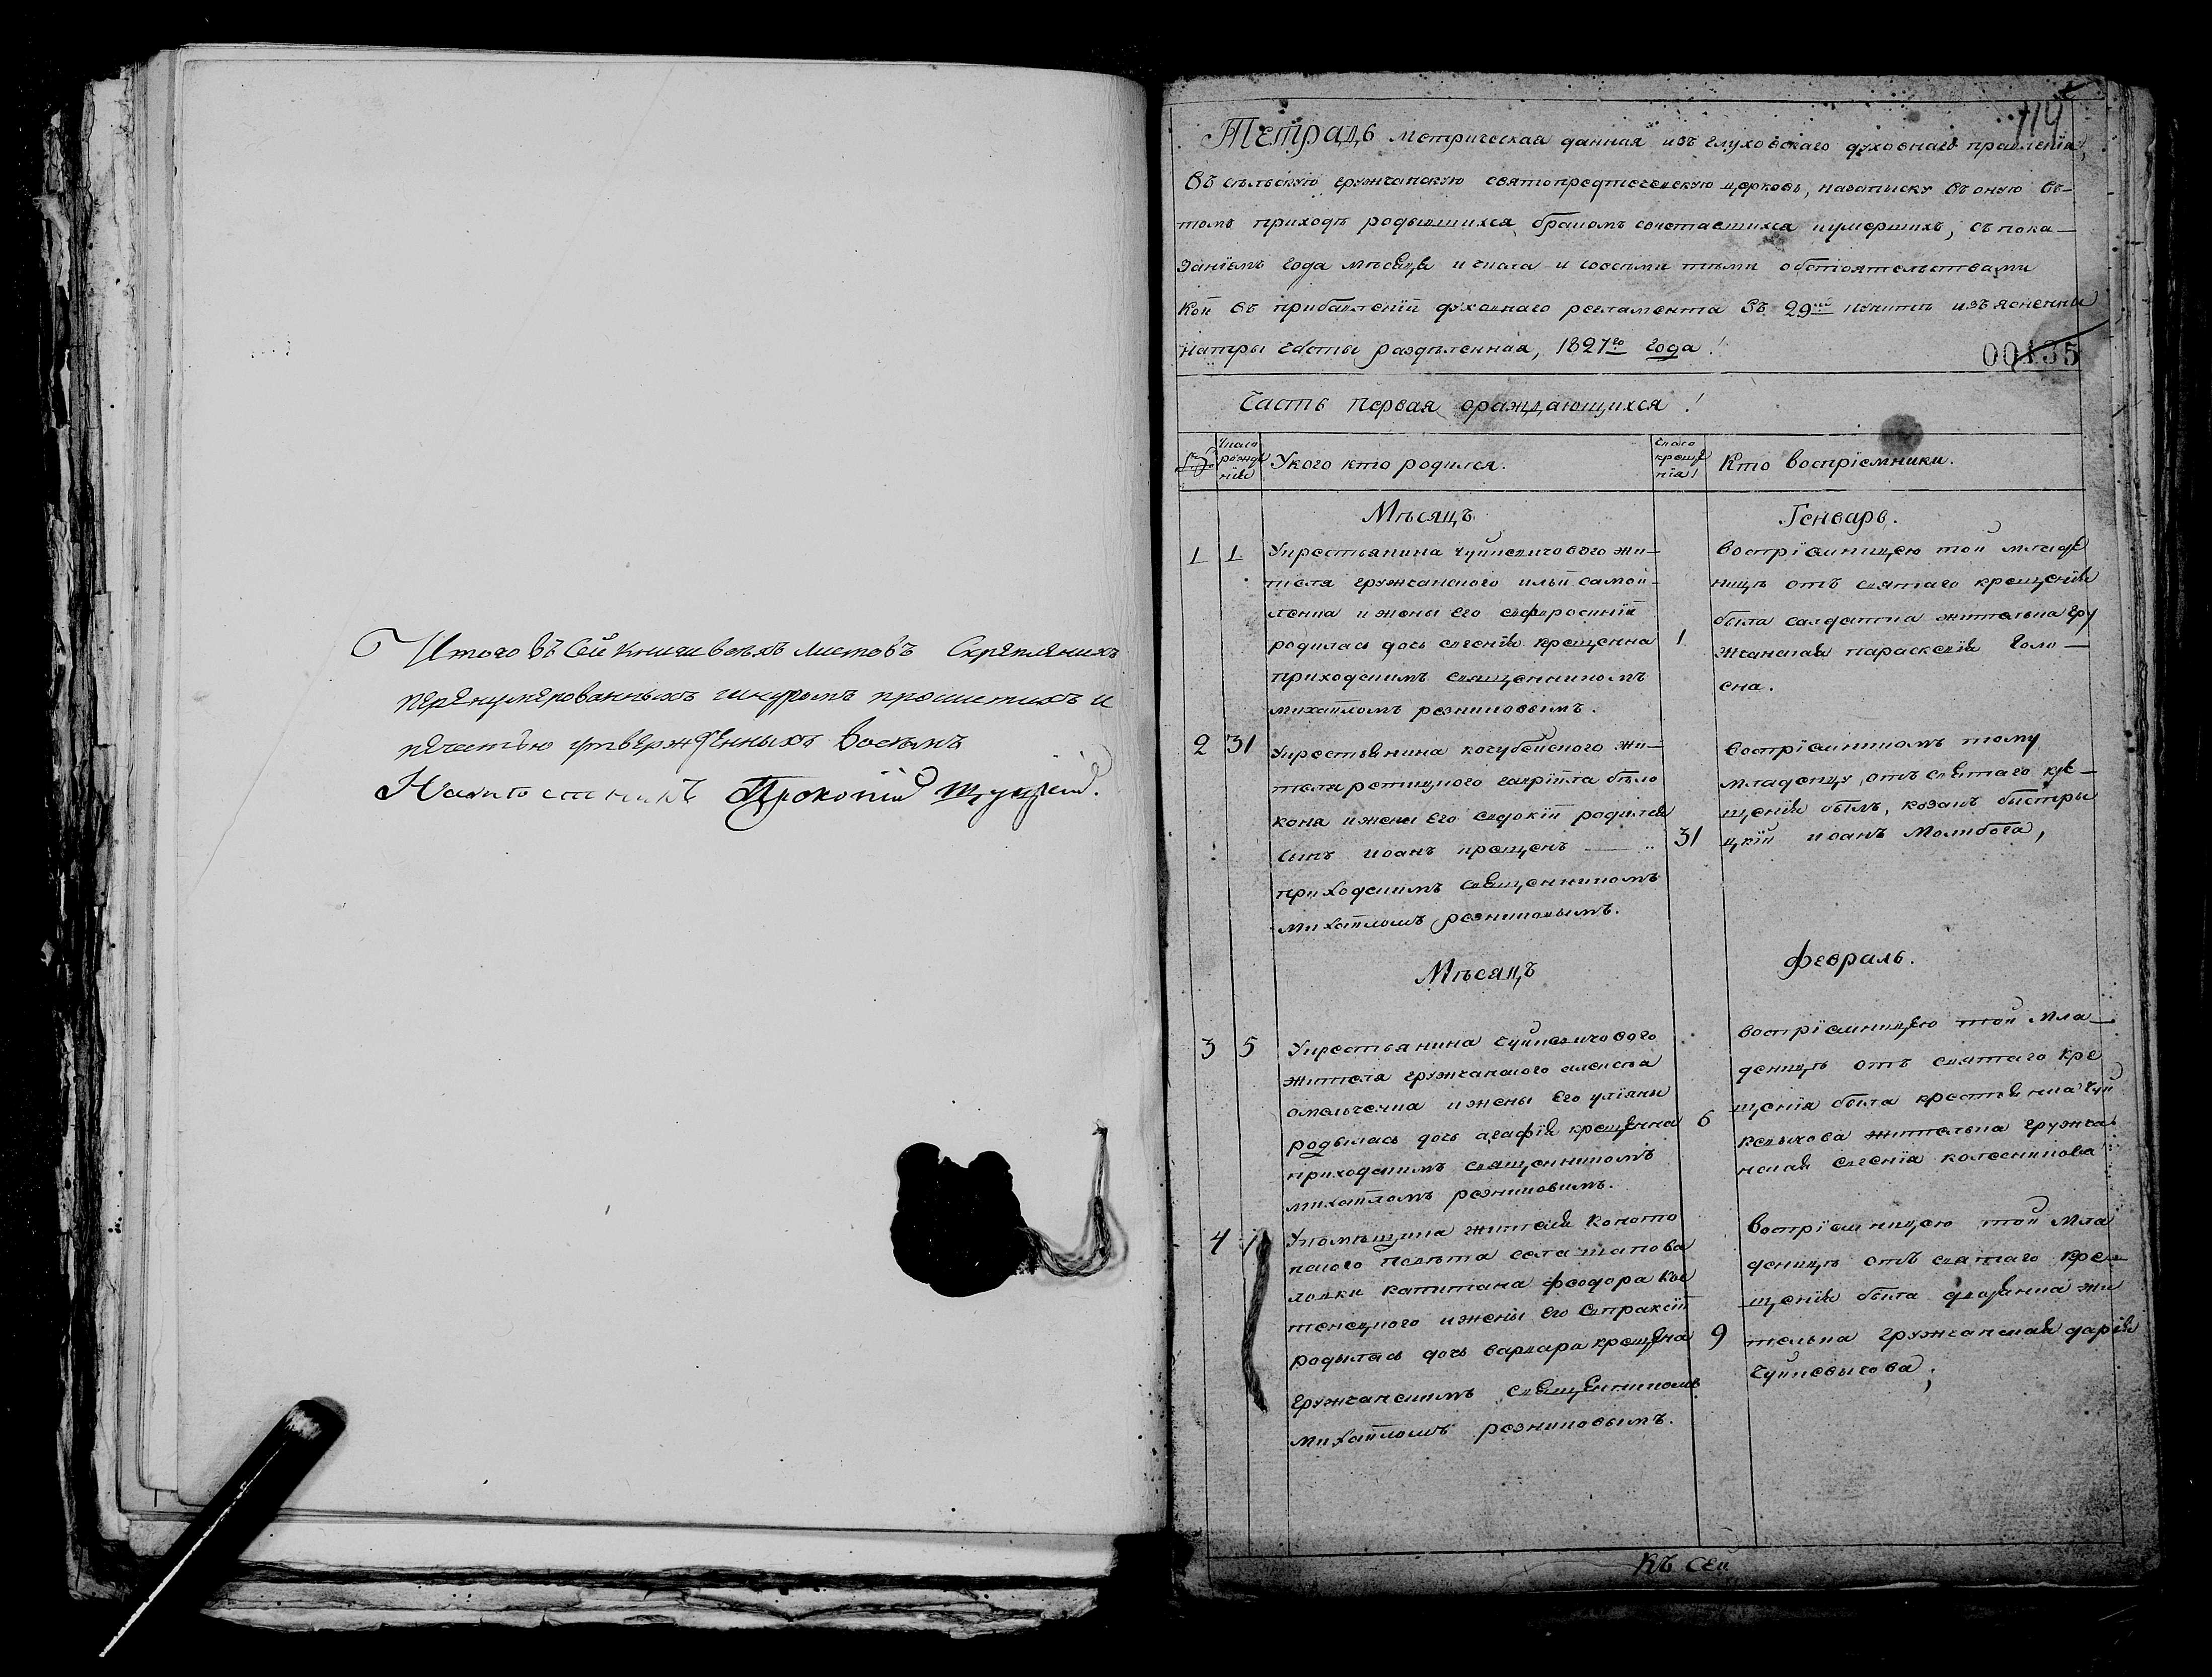 Итого въ Сей книги всѣхъ листовъ Скрепленихъ
перенумерованныхъ шнуромъ прошитихъ и
печатью утвержденныхъ Восѣмъ
Прокопій
114
Тетрадь метрическая данная изъ глуховскаго духовнаго правленія,
въ сельскую гружчанскую святопредтечевскую церковь, назаписку въ оную въ-
томъ приходѣ родывшихся бракомъ сочетавшихся иумершихъ, съ пока-
заніемъ года мѣсяца и числа и совсѣми тѣми обстоятельствами
кои въ прибавленіи духовнаго регламента въ 29мъ пунктѣ изъясненны
натры части раздѣленная, 1827го года!
00135
Часть Первая ораждающихся!
Число рожде нія
Укого кто родился.
Число креще нія!
Кто воспріемники.
Мѣсяцъ
Генварь.
1 1
Укрестьянина чуйкевичового жи-
теля гружчанского ильи самой-
ленка и жены его евфросиніи
родилась дочь евгенія крещенна
приходскимъ священникомъ
михаиломъ резниковымъ.
1
воспріемницею той младе
ницѣ отъ святаго крещенія
была салдатка жителька гру
жчанская параскевія Голо-
вна.
2 31
Укрестьянина кочубейского жи-
теля ретицкого гавріила бѣло
коня ижены его евдокіи родился
сынъ иоанъ крещенъ
приходскимъ священникомъ
михаиломъ резниковымъ.
31
воспріемникомъ тому
младенцу отъ святаго кре-
щенія былъ, козакъ быстри
цкій иоанъ Молибога,
Мѣсяцъ
Февраль.
3 5
Укрестьянина Чуйкевичового
жителя гружчанского алексѣя
омельченка ижены его уліяны
родылась дочь агафія крещенна
приходскимъ священникомъ
михаиломъ резниковимъ.
6
воспріемницею той мла-
деницѣ отъ святаго кре
щенія была крестьянка Чуй
кевычова жителька гружча
нская евгенія колесникова
4
Упомѣщика жителя Коното
пского повѣта села шапова
ловки капитана феодора Кос
тенецкого ижены его Евпраксіи
родылась дочь варвара крещена
гружчанскимъ священникомъ
михаиломъ резниковымъ.
9
воспріемницею той мла
деницѣ отъ святаго кре-
щенія была дворянка жи
телька гружчанская дарія
Чуйкевычова,
Въ сей